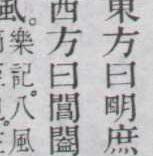 東方曰朙庶
西方曰閶闔
風。樂記。八風